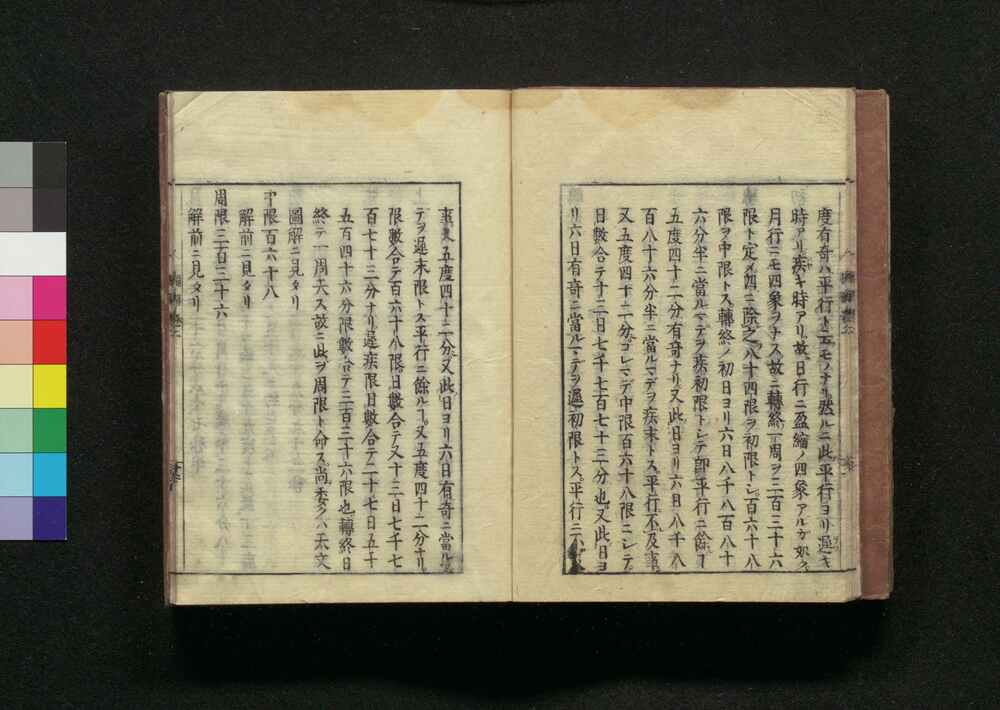 度有奇ハ平行ト云モノナリ然ルニ此平行ヨリ遲キ
時アリ疾キ時アリ故ニ日行ニ盈縮ノ四象アルガ如ク
月行ニモ四象ヲナス故ニ轉終一周ヲ三百三十六
限ト定メ四ニ除之八十四限ヲ初限トシ百六十八
限ヲ中限トス轉終ノ初日ヨリ六日八千八百八十
六分半ニ當ルマデヲ疾初限トシテ卽平行ニ餘ルヿ
五度四十二分有奇ナリ又此日ヨリ六日八千八
百八十六分半ニ當ルマデヲ疾末トス平行不及事
又五度四十二分コレマデ中限百六十八限ニシテ
日數合テ十三日七千七百七十三分也又此日ヨ
リ六日有奇ニ當ルマデヲ遲初限トス平行ニ
事又五度四十二分又此日ヨリ六日有奇ニ當ル
テヲ遲末限トス平行ニ餘ルヿ又五度四十二分ナリ
限數合テ百六十八限日數合テ又十三日七千七
百七十三分ナリ遲疾限日數合テ二十七日五十
五百四十六分限數合テ三百三十六限也轉終日
終テ一周天ス故ニ此ヲ周限ト命ス尚委クハ天文
圖解ニ見タリ
中限百六十八
解前ニ見タリ
周限三百三十六
解前ニ見タリ